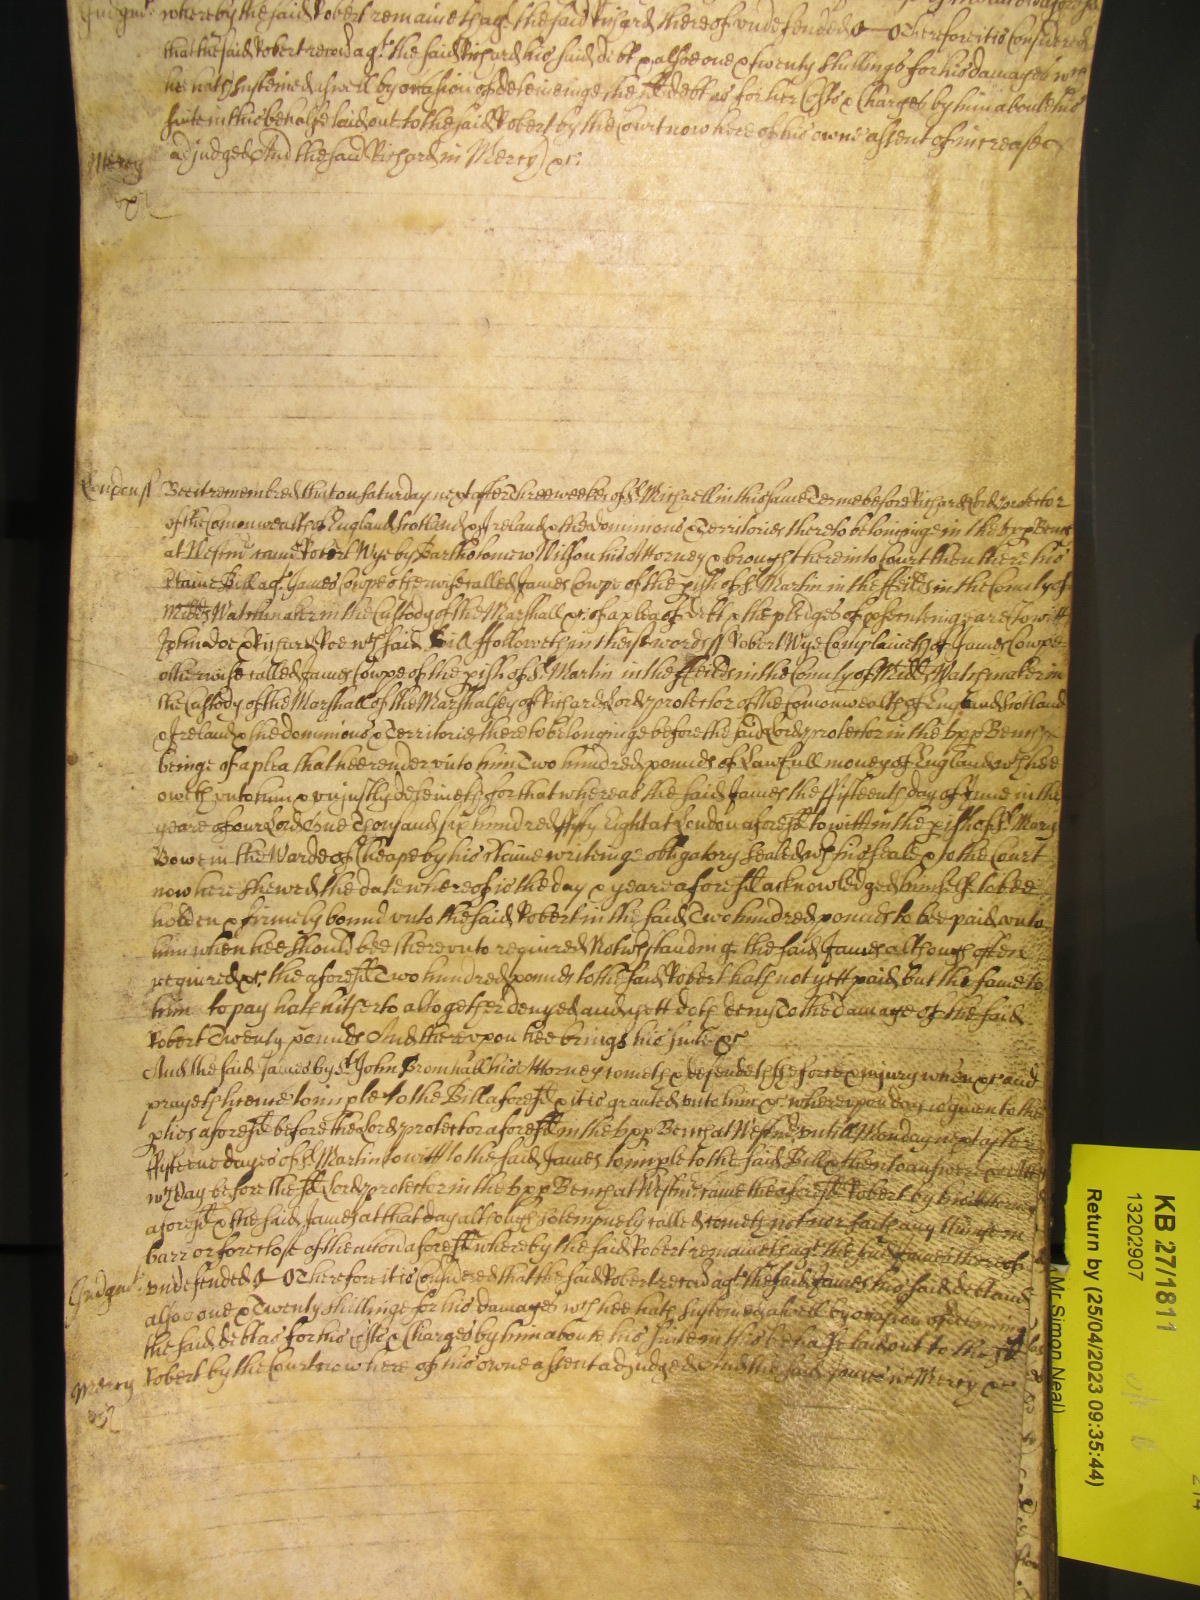 Judgmt. whereby the said Robert remaineth agt. the said Richard thereof undefended Therefore it is Considered
that the said Robert recov agt. the said Richard his said debt & alsoe one & twenty shillings for his damages wch
he hath susteined aswell by occasion of deteineinge the sd debt as for his Costs & Charges by him about his
suite in this behalfe laid out to the said Robert by the Court now here of his owne assent of increase
Mercy adjudged And the said Richard in Mercy &c.
London ss Bee it remembred that on Saturday next after Three weekes of St. Michaell in this same Terme before Richard Lord Protector
of the Comonwealth of England Scotland & Ireland & the dominions & Territories thereto belonginge in the upp Bench
at Westmr. came Robert Wye by Bartholomew Wilson his Attorney & brought here into Court then there his
certaine Bill agt. James Cowpe otherwise called James Cowpe of the pish of St. Martin in the ffeilds in the County of
Midds Watchmaker in the Custody of the Marshall &c. of a plea of debt & the pledges of psecuting are to witt
John Doe & Richard Roe wch said Bill followeth in these words ss Robert Wye Complaineth of James Cowpe
otherwise called James Cowpe of the pish of St. Martin in the ffeilds in the County of Midds Watchmaker in
the Custody of the Marshall of the Marshalsey of Richard Lord protector of the Comonwealth of England Scotland
& Ireland & the dominions & Territories thereto belonginge before the said Lord protector in the upp Bench
beinge of a plea that hee render unto him Two hundred pounds of Lawfull money of England wch hee
oweth unto him & unjustly deteineth for that whereas the said James the ffifteenth day of June in the
yeare of our Lord One Thousand six hundred ffifty Eight at London aforesd to witt in the pish of St. Mary
Bowe in the Warde of Cheape by his certaine writinge obligatory Sealed wth his seale & to the Court
now here shewed the date whereof is the day & yeare aforesd acknowledged himselfe to bee
holden & firmely bound unto the said Robert in the said Two hundred pounds to bee paid unto
him when hee should bee thereunto required Notwthstanding the said James although often
required &c. the aforesd Two hundred pounds to the said Robert hath not yett paid but the same to
him to pay hath hitherto altogether denyed and yett doth deny To the damage of the said
Robert Twenty pounds And thereupon hee brings his suite &c
And the said James by St. John Bromhall his Attorney cometh & defendeth the force & injury when &c and
prayeth leave to imple to the Bill aforesd & it is granted unto him &c whereupon day is given to the
pties aforesd before the Lord protector aforesd in the upp Bench at Westmr. untill Monday next after
ffifteene dayes of St. Martin to witt to the said James to imple to the said Bill & then to answere &c Att
wch day before the sd Lord protector in the upp Bench at Westmr. came the aforesd Robert by his Attorney
aforesd & the said James at that day although solempnely called cometh not nor saith any thinge in
barr or foreclose of the accon aforesd whereby the said Robert remaineth agt. the said James thereof
Judgmt. undefended Therefore it is Considered that the said Robert recov agt. the said James his said debt and
alsoe one & Twenty shillings for his damages wch hee hath susteined aswell by occasion of deteining
the said debt as for his costs & Charges by him about his suite in this behalfe laid out to the sd
Mercy Robert by the Court now here of his owne assent adjudged And the said James in Mercy &c
KB 27/1811
13202907
Return by (25/04/2023 09:35:44)
Mr Simon Neal)